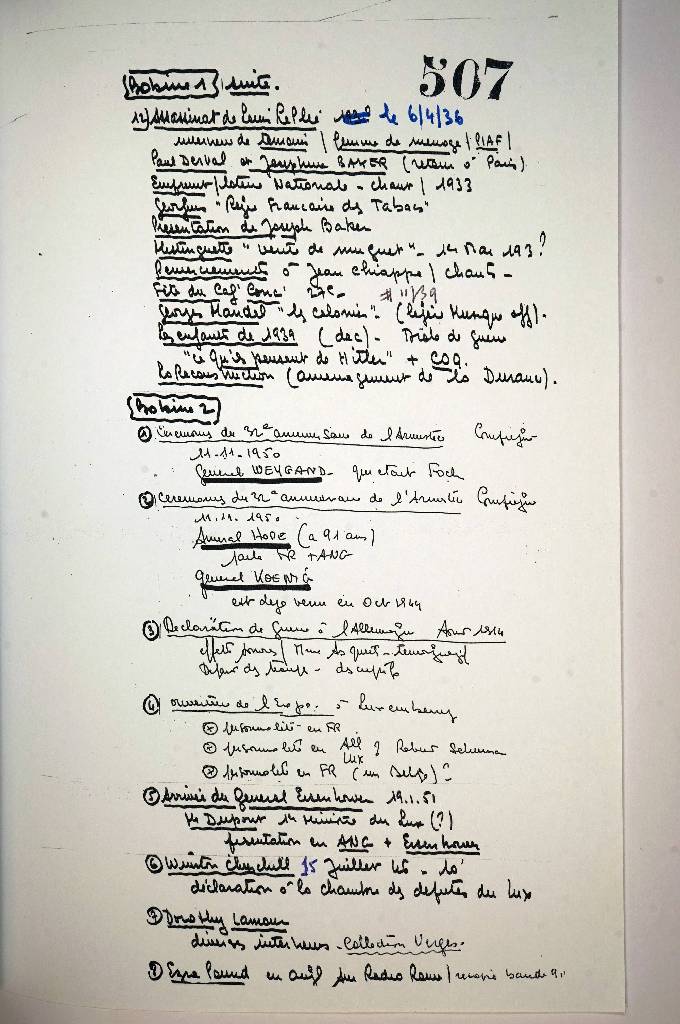 507
Bobine 1 suite.
12) Assassinat de Louis Leplée le 6/4/36
interview de / femme de menage / PIAF /
Paul Derval et Josephine BAKER (retour à Paris)
Emprunt / loterie Nationale - chant / 1933
Georgius "Regie Francaise des Tabacs"
Presentation de Joseph Baker
Mistinguette "vente de muguet" - 1er Mai 193?
Remerciements à Jean Chiappe / chants -
Fête du Caf' Conc' 27C - # 11/39
Georges Mandel "les colonies" - (légère Musique off).
Les enfants de 1939 (dec) - Drole de guerre
"ce qu'ils pensent de Hitler" + COQ.
La Reconstruction (amenagement de la Durance).
Bobine 2
1 Ceremonies du 32e anniversaire de l'Armistice Compiègne
11-11-1950
General WEYGAND - qui etait Foch
2 Ceremonies du 32e anniversaire de l'Armistice Compiègne
11.11.1950
Amiral HOPE (a 91 ans)
parle FR + ANG
General KOENIG
est deja venu en Oct 1944
3 Declaration de Guerre à l'Allemagne Aout 1914
effets sonores / Mme Asquith - temoignage
Depart des troupes -
4 ouverture de l'Expo. à Luxembourg
personnalité en FR
personnalité en All ? Robert Schuman
Lux
personnalité en FR (un Belge) ?
5 Arrivée du General Eisenhower 19.1.51
Mr Dupont 1er Ministre du Lux (?)
presentation en ANG + Eisenhower
6 Winston Churchill 15 Juillet 46 - 10'
déclaration à la chambre des deputés du Lux
7 Dorothy Lamour
diverses interviews - Collection Verges.
8 Ezra Pound en sur Radio Rome / recopié bande